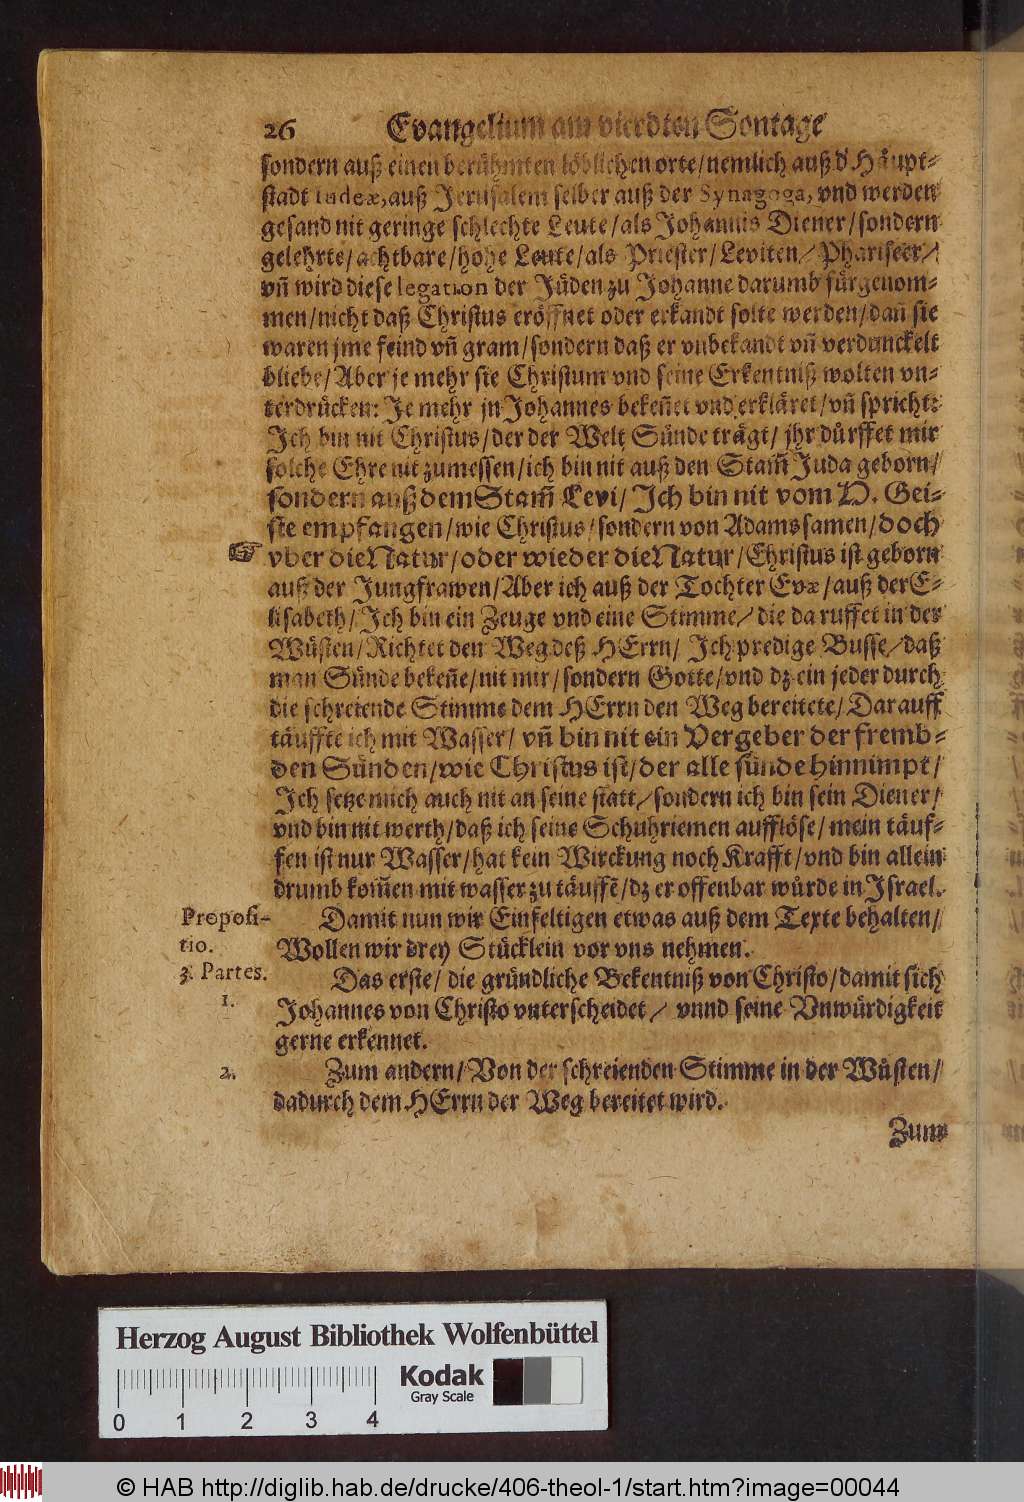 26 Evangelium am vierdten Sontage
sondern auß einen berühmten löblichen orte/nemlich auß d' Häupt-
stadt Iudeæ, auß Jerusalem selber auß der Synagoga, vnd werden
gesand nit geringe schlechte Leute/als Johannis Diener/sondern
gelehrte/achtbare/hohe Leute/als Priester/Leviten/Phariseer/
vñ wird diese legation der Jüden zu Johanne darumb fürgenom-
men/nicht daß Christus eröffnet oder erkandt solte werden/dañ sie
waren jme feind vñ gram/sondern daß er vnbekandt vñ verdunckelt
bliebe/Aber je mehr sie Christum vnd seine Erkentniß wolten vn-
terdrücken: Je mehr jn Johannes bekeñet vnd erkläret/vñ spricht:
Ich bin nit Christus/der der Welt Sünde trägt/jhr dürffet mir
solche Ehre nit zumessen/ich bin nit auß den Stam̃ Juda geborn/
sondern auß dem Stam̃ Levi/Ich bin nit vom H. Gei-
ste empfangen/wie Christus/sondern von Adams samen/doch
☞ vber die Natur/oder wieder die Natur/Christus ist geborn
auß der Jungfrawen/Aber ich auß der Tochter Evæ/auß der E-
lisabeth/Ich bin ein Zeuge vnd eine Stimme/die da ruffet in der
Wüsten/Richtet den Weg deß HErrn/Ich predige Busse/daß
man Sünde bekeñe/nit mir/sondern Gotte/vnd dz ein jeder durch
die schreiende Stimme dem HErrn den Weg bereitete/Darauff
täuffte ich mit Wasser/vñ bin nit ein Vergeber der fremb-
den Sünden/wie Christus ist/der alle sünde hinnimpt/
Ich setze mich auch nit an seine statt/sondern ich bin sein Diener/
vnd bin nit werth/daß ich seine Schuhriemen aufflöse/mein täuf-
fen ist nur Wasser/hat kein Wirckung noch Krafft/vnd bin allein
drumb kom̃en mit wasser zu täuffẽ/dz er offenbar würde in Israel.
Proposi- Damit nun wir Einfeltigen etwas auß dem Texte behalten/
tio. Wollen wir drey Stücklein vor vns nehmen.
3. Partes. Das erste/die gründliche Bekentniß von Christo/damit sich
1. Johannes von Christo vnterscheidet/vnnd seine Vnwürdigkeit
gerne erkennet.
2. Zum andern/Von der schreienden Stimme in der Wüsten/
dadurch dem HErrn der Weg bereitet wird.
Zum
Herzog August Bibliothek Wolfenbüttel
Kodak
Gray Scale
0 1 2 3 4
© HAB http://diglib.hab.de/drucke/406-theol-1/start.htm?image=00044